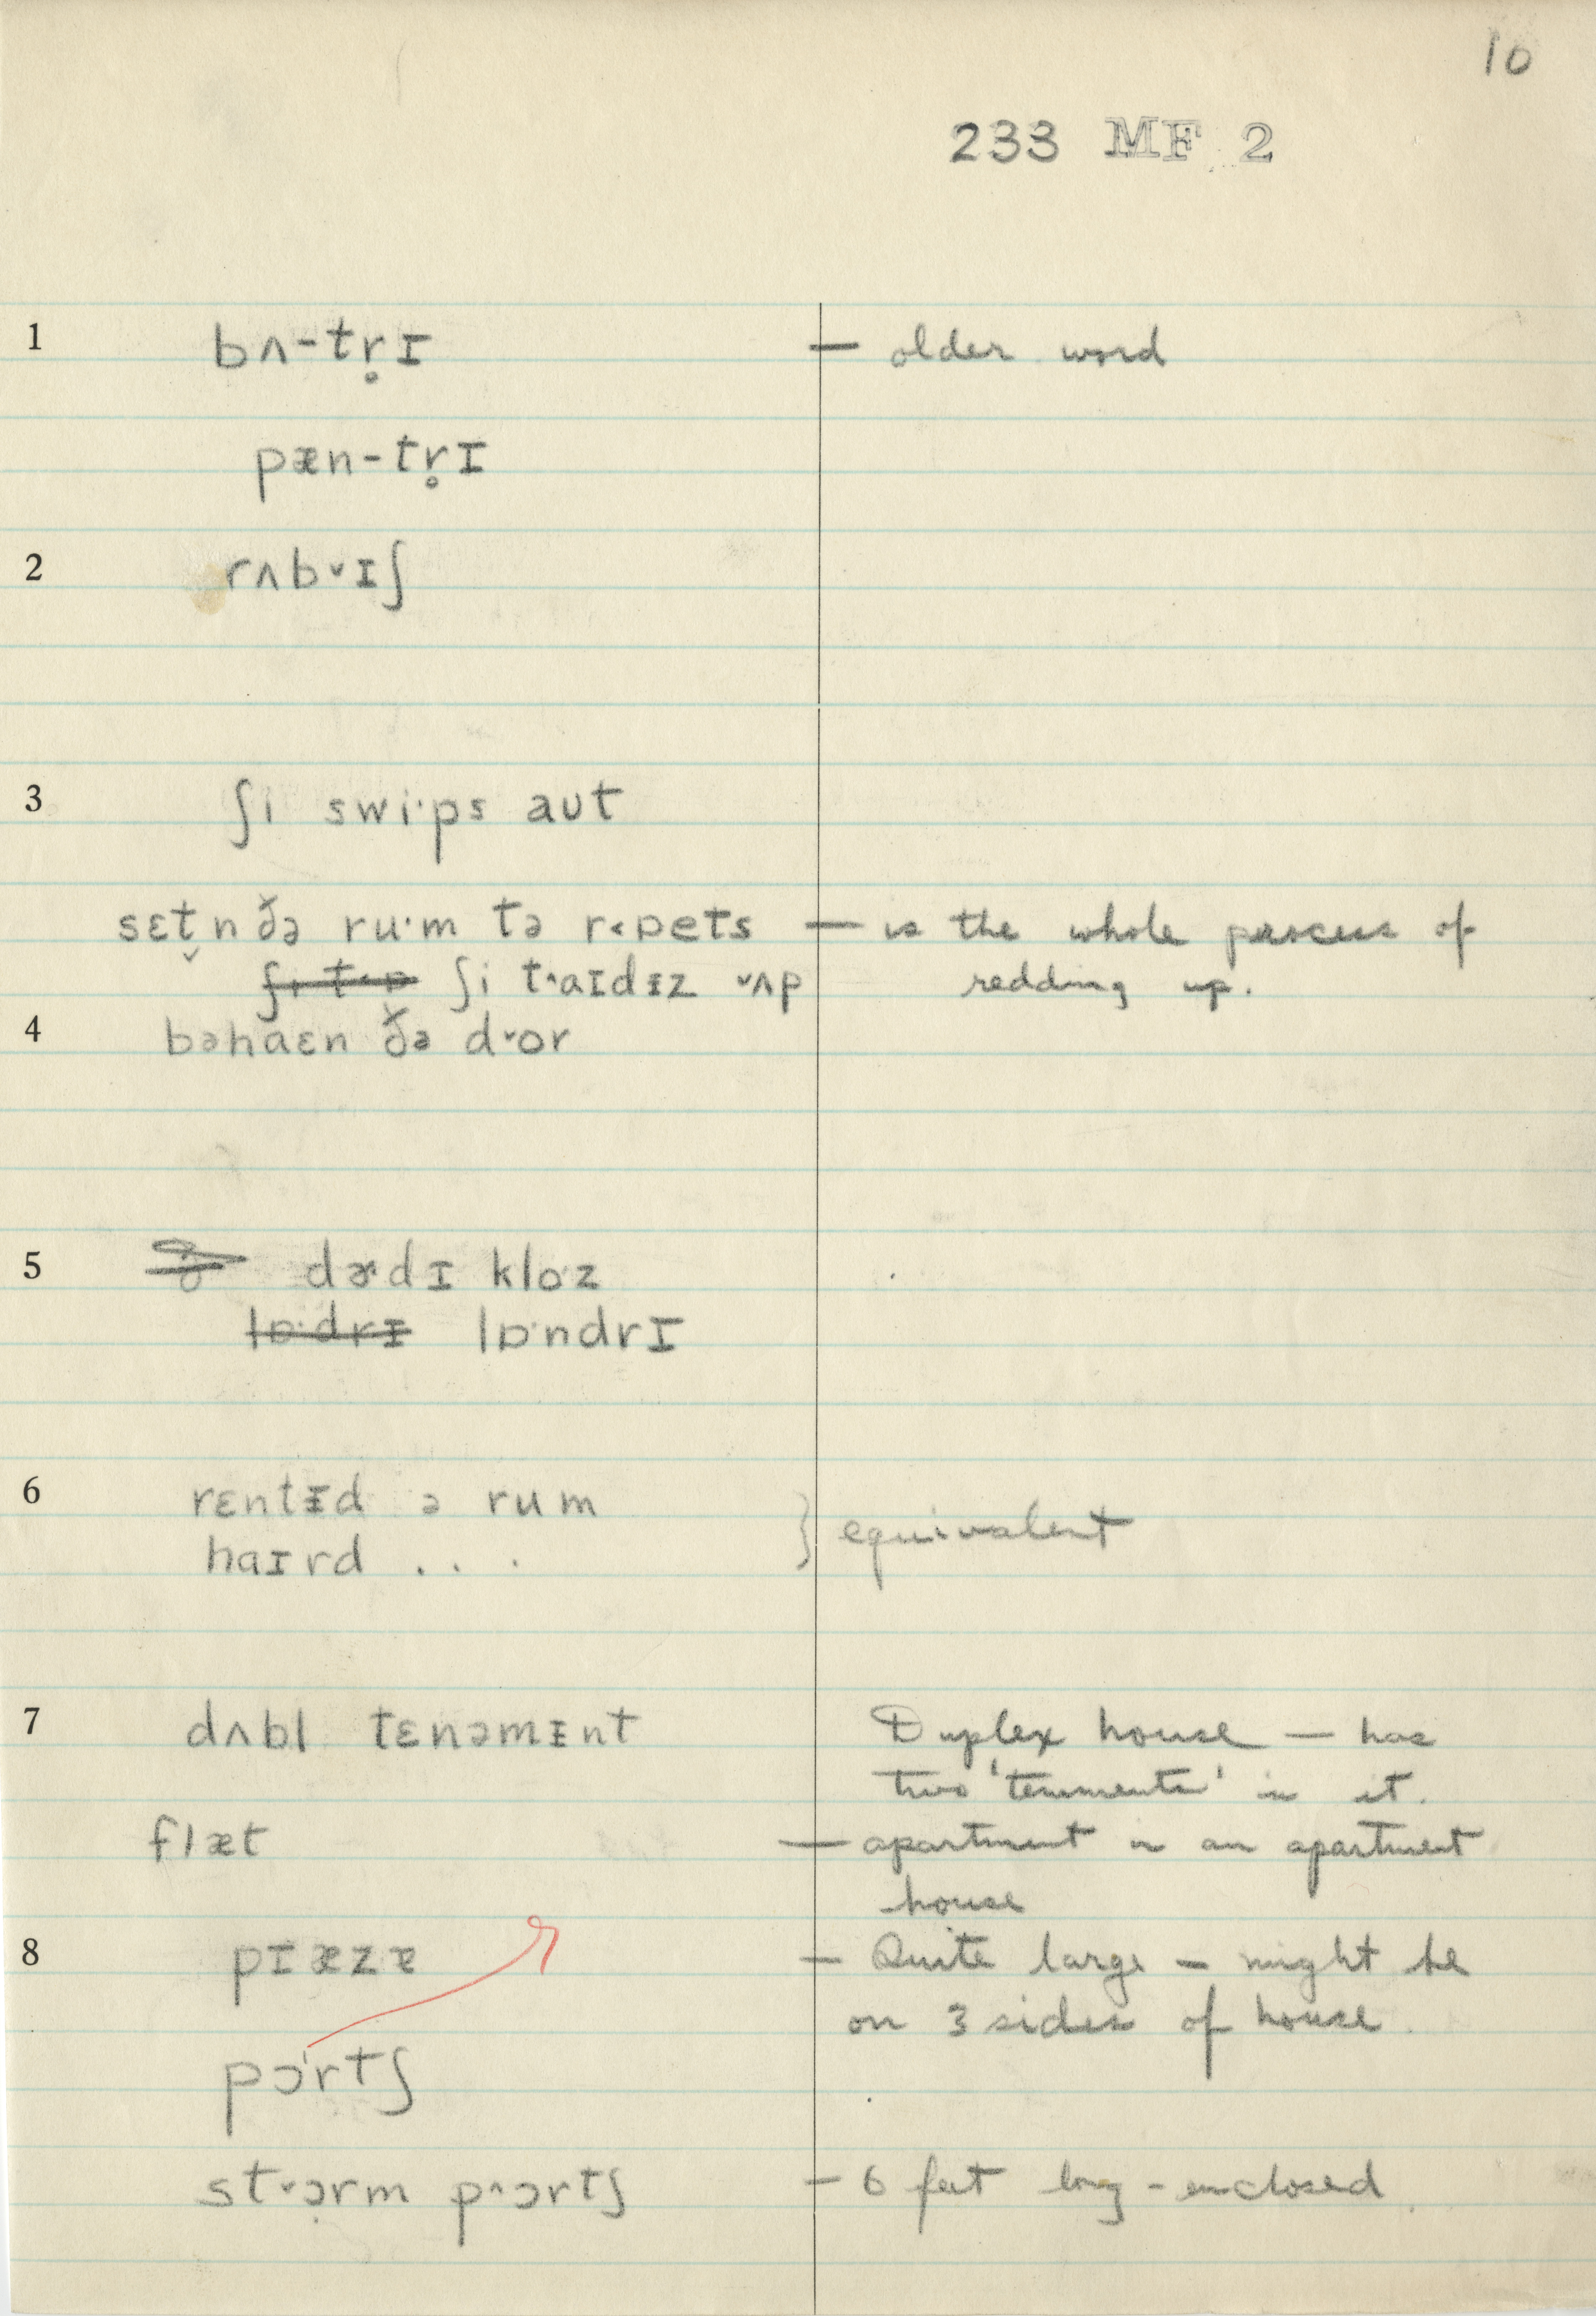 10
233 MF 2
1 bʌ-tr̥ɪ — older word
pæn-tr̥ɪ
2 rʌb˅ɪʃ
3 ʃi swi·ps aut
sɛt̬n ðə ru·m tə r˂ɒets — is the whole process of
ʃi t˄aɪdɪz ˅ʌp redding up.
4 bəhaɛn ðə d˅or
5 dɚdɪ klo·z
lɒ·drɪ lɒ·ndrɪ
6 rɛntɪd ə rum } equivalent
haɪrd . . .
7 dʌbl tɛnəmɪnt Duplex house — has
two 'tenements' in it.
flæt — apartment in an apartment
house
8 pɪæzɐ — Quite large — might be
on 3 sides of house.
pɔ·rtʃ
st˅ɔrm p˄ɔrtʃ — 6 feet long - enclosed.